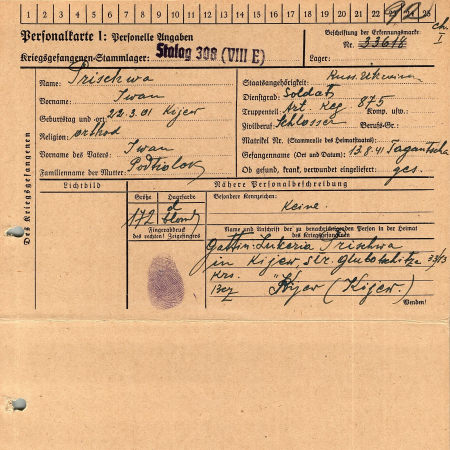 1 2 3 4 5 6 7 8 9 10 11 12 13 14 15 16 17 18 19 20 21 22 23 24 25
Personalkarte I: Personelle Angaben
Kriegsgefangenen-Stammlager: Stalag 308 (VIII E)
Beschriftung der Erkennungsmarke
Nr. 33618
Lager:
Des Kriegsgefangenen
Name: Prischwa
Vorname: Iwan
Geburtstag und -ort: 22.3.01 Kijew
Religion: orthod
Vorname des Vaters: Iwan
Familienname der Mutter:
Staatsangehörigkeit: Russ. Ukrain
Dienstgrad: Soldat
Truppenteil: Art. Reg 875 Komp. usw.:
Zivilberuf: Schlosser Berufs-Gr.:
Matrikel Nr. (Stammrolle des Heimatstaates):
Gefangennahme (Ort und Datum): 13.8.41 Tagantscha
Ob gesund, krank, verwundet eingeliefert: ges.
Lichtbild
Nähere Personalbeschreibung
Größe Haarfarbe Besondere Kennzeichen:
172 blond Keine
Fingerabdruck
des rechten! Zeigefingers
Name und Anschrift der zu benachrichtigenden Person in der Heimat
des Kriegsgefangenen
Gattin: Lukeria Prischwa
in Kijew, str. 33/13
Krs. "
Bez Kijew (Kijew.)
Wenden!